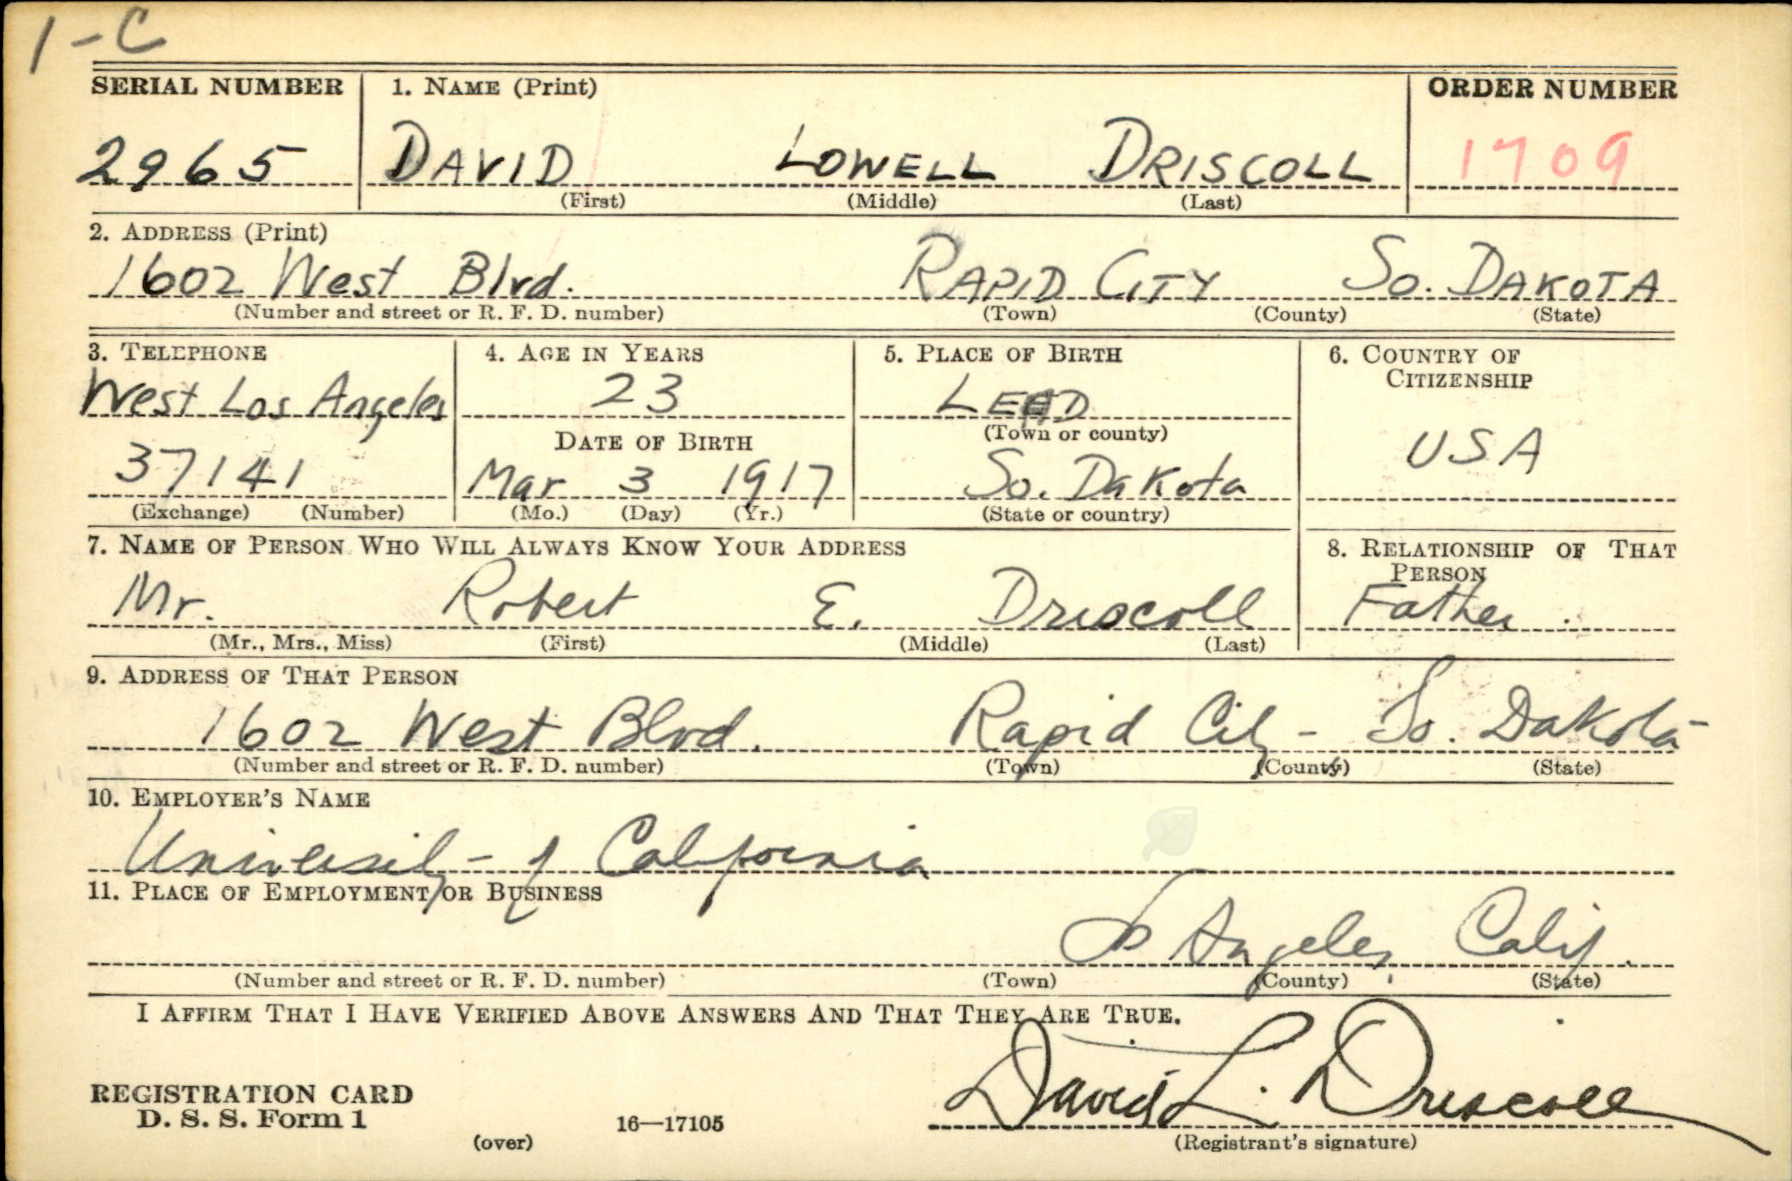 1-C
SERIAL NUMBER 1. NAME (Print) ORDER NUMBER
2965 DAVID LOWELL DRISCOLL 1709
(First) (Middle) (Last)
2. ADDRESS (Print)
1602 West Blvd. RAPID CITY SO. DAKOTA
(Number and street or R. F. D. number) (Town) (County) (State)
3. TELEPHONE 4. AGE IN YEARS 5. PLACE OF BIRTH 6. COUNTRY OF
CITIZENSHIP
West Los Angeles 23 LEAD
(Town or county)
DATE OF BIRTH USA
37141 Mar 3 1917 So. Dakota
(Exchange) (Number) (Mo.) (Day) (Yr.) (State or country)
7. NAME OF PERSON WHO WILL ALWAYS KNOW YOUR ADDRESS 8. RELATIONSHIP OF THAT
PERSON
Mr. Robert E. Driscoll Father
(Mr., Mrs., Miss) (First) (Middle) (Last)
9. ADDRESS OF THAT PERSON
1602 West Blvd. Rapid City - So. Dakota
(Number and street or R. F. D. number) (Town) (County) (State)
10. EMPLOYER'S NAME
University of California
11. PLACE OF EMPLOYMENT OR BUSINESS
Los Angeles, Calif.
(Number and street or R. F. D. number) (Town) (County) (State)
I AFFIRM THAT I HAVE VERIFIED ABOVE ANSWERS AND THAT THEY ARE TRUE.
REGISTRATION CARD
D. S. S. Form 1 David L. Driscoll
(over) 16—17105 (Registrant's signature)